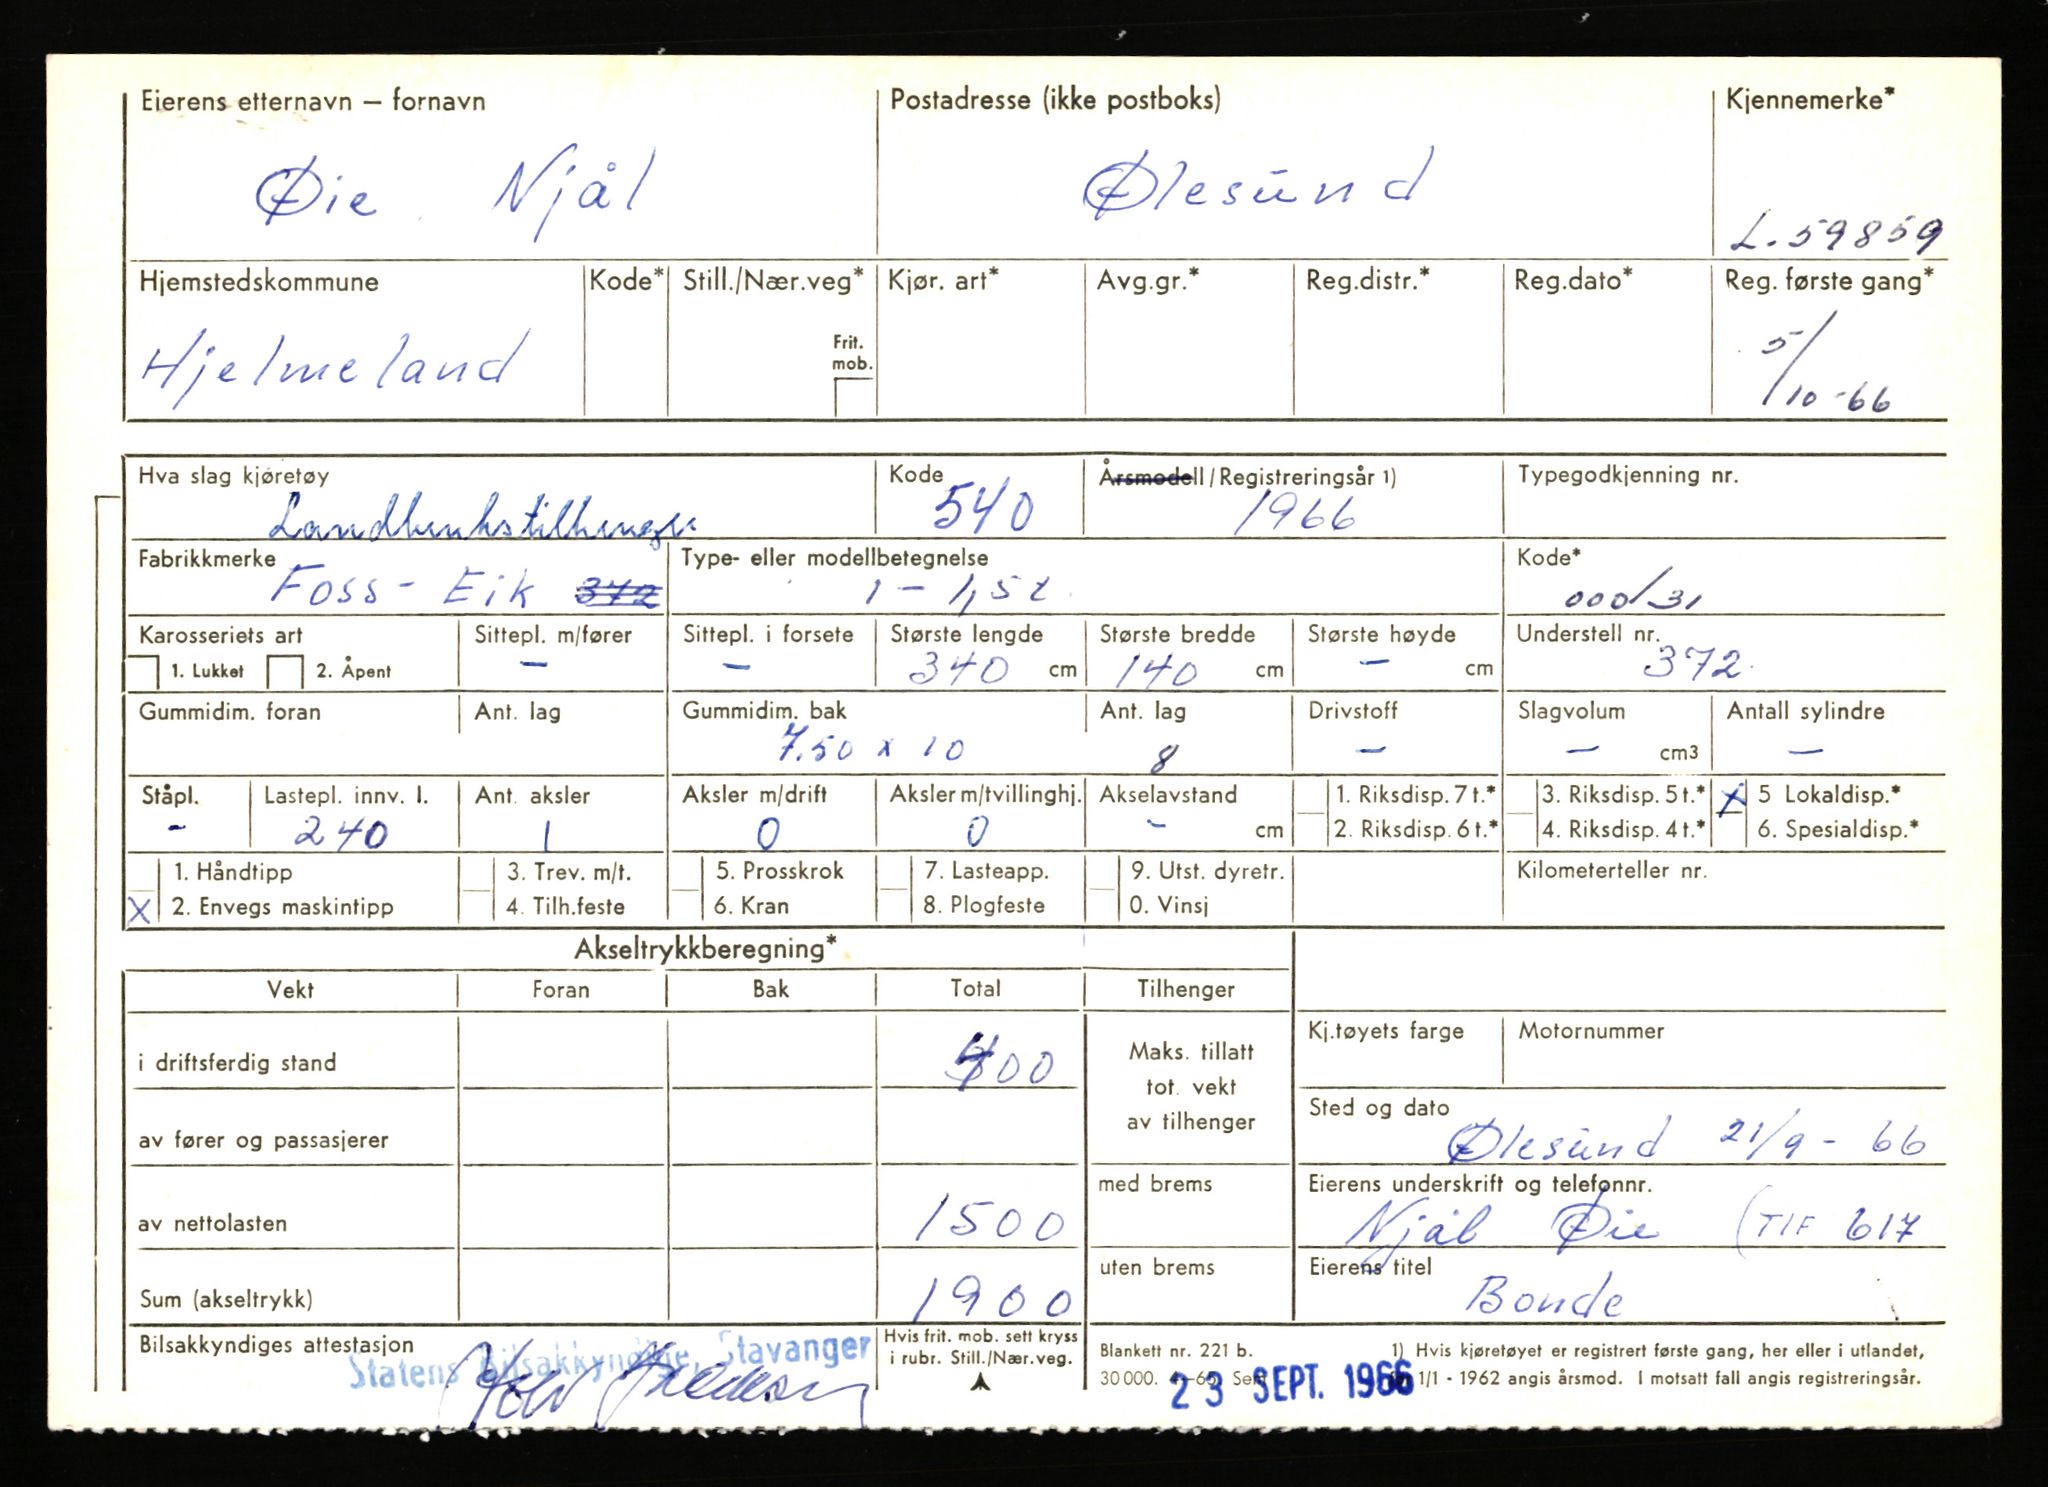 Eierens etternavn – fornavn Postadresse (ikke postboks) Kjennemerke*
Øie Njål Ølesund L-59859
Hjemstedskommune Kode* Still./Nær.veg* Kjør. art* Avg.gr.* Reg.distr.* Reg.dato* Reg. første gang*
Hjelmeland Frit. mob. 5/10-66
Hva slag kjøretøy Kode Årsmodell/Registreringsår 1) Typegodkjenning nr.
Landbrukstilhenger 540 1966
Fabrikkmerke Type- eller modellbetegnelse Kode*
Foss-Eik 372 1 – 1,5 t 000/31
Karosseriets art Sittepl. m/fører Sittepl. i forsete Største lengde Største bredde Største høyde Understell nr.
1. Lukket 2. Åpent – – 340 cm 140 cm – cm 372
Gummidim. foran Ant. lag Gummidim. bak Ant. lag Drivstoff Slagvolum Antall sylindre
7.50 x 10 8 – – cm3 –
Ståpl. Lastepl. innv. l. Ant. aksler Aksler m/drift Aksler m/tvillinghj. Akselavstand 1. Riksdisp. 7 t.* 3. Riksdisp. 5 t.* X 5 Lokaldisp.*
- 240 1 0 0 - cm 2. Riksdisp. 6 t.* 4. Riksdisp. 4 t.* 6. Spesialdisp.*
1. Håndtipp 3. Trev. m/t. 5. Prosskrok 7. Lasteapp. 9. Utst. dyretr. Kilometerteller nr.
X 2. Envegs maskintipp 4. Tilh.feste 6. Kran 8. Plogfeste 0. Vinsj
Akseltrykkberegning*
Vekt Foran Bak Total Tilhenger
i driftsferdig stand 400 Maks. tillatt tot. vekt av tilhenger Kj.tøyets farge Motornummer
av fører og passasjerer Sted og dato
Ølesund 21/9 - 66
av nettolasten 1500 med brems Eierens underskrift og telefonnr.
Njål Øie (Tlf 617
Sum (akseltrykk) 1900 uten brems Eierens titel
Bonde
Bilsakkyndiges attestasjon Hvis frit. mob. sett kryss i rubr. Still./Nær.veg.
Statens Bilsakkyndige, Stavanger
Blankett nr. 221 b. 1) Hvis kjøretøyet er registrert første gang, her eller i utlandet,
30 000. 1/1 - 1962 angis årsmod. I motsatt fall angis registreringsår.
23 SEPT. 1966